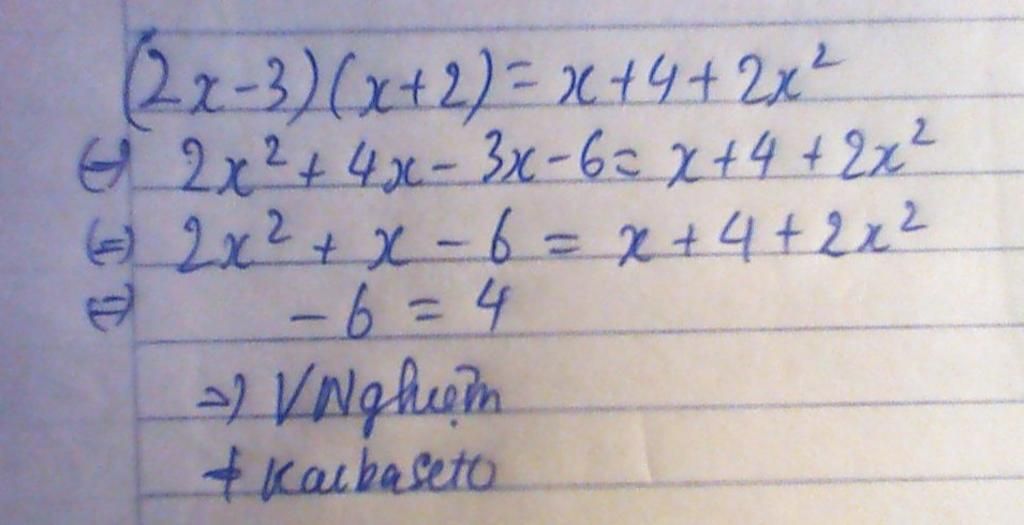 (2x-3)(x+2)=x+4+2x²
(=) 2x²+4x-3x-6=x+4+2x²
(=) 2x²+x-6=x+4+2x²
(=) -6=4
=) VNghiệm
+ Kaibaseto